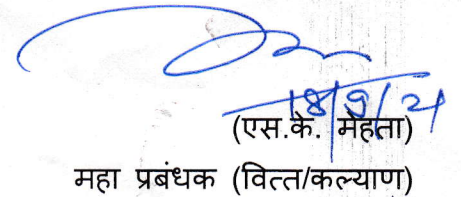 18/9/21
(एस.के. मेहता)
महा प्रबंधक (वित्त/कल्याण)